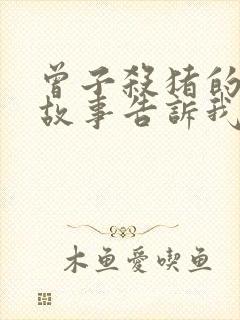 曾子殺猪的
故事告訴我
木鱼愛喫鱼